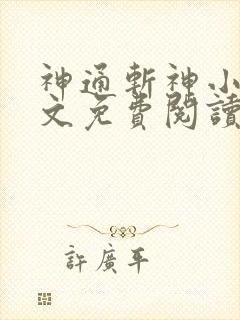 神通斬神小
文免費閱讀
許廣平